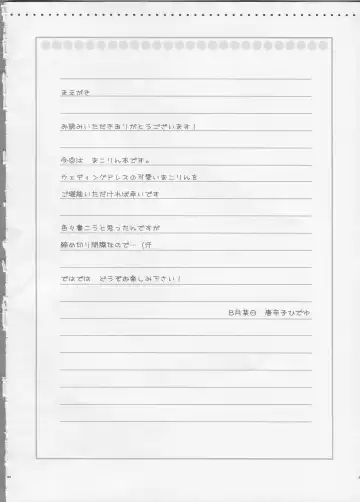 まえがき
お読みいただきありがとうございます!
今回は まこりん本です。
ウェディングドレスの可愛いまこりんを
ご堪能いただければ幸いです
色々書こうと思ったんですが
締め切り間際なので…(汗
ではでは どうぞお楽しみ下さい!
8月某日 唐辛子ひでゆ